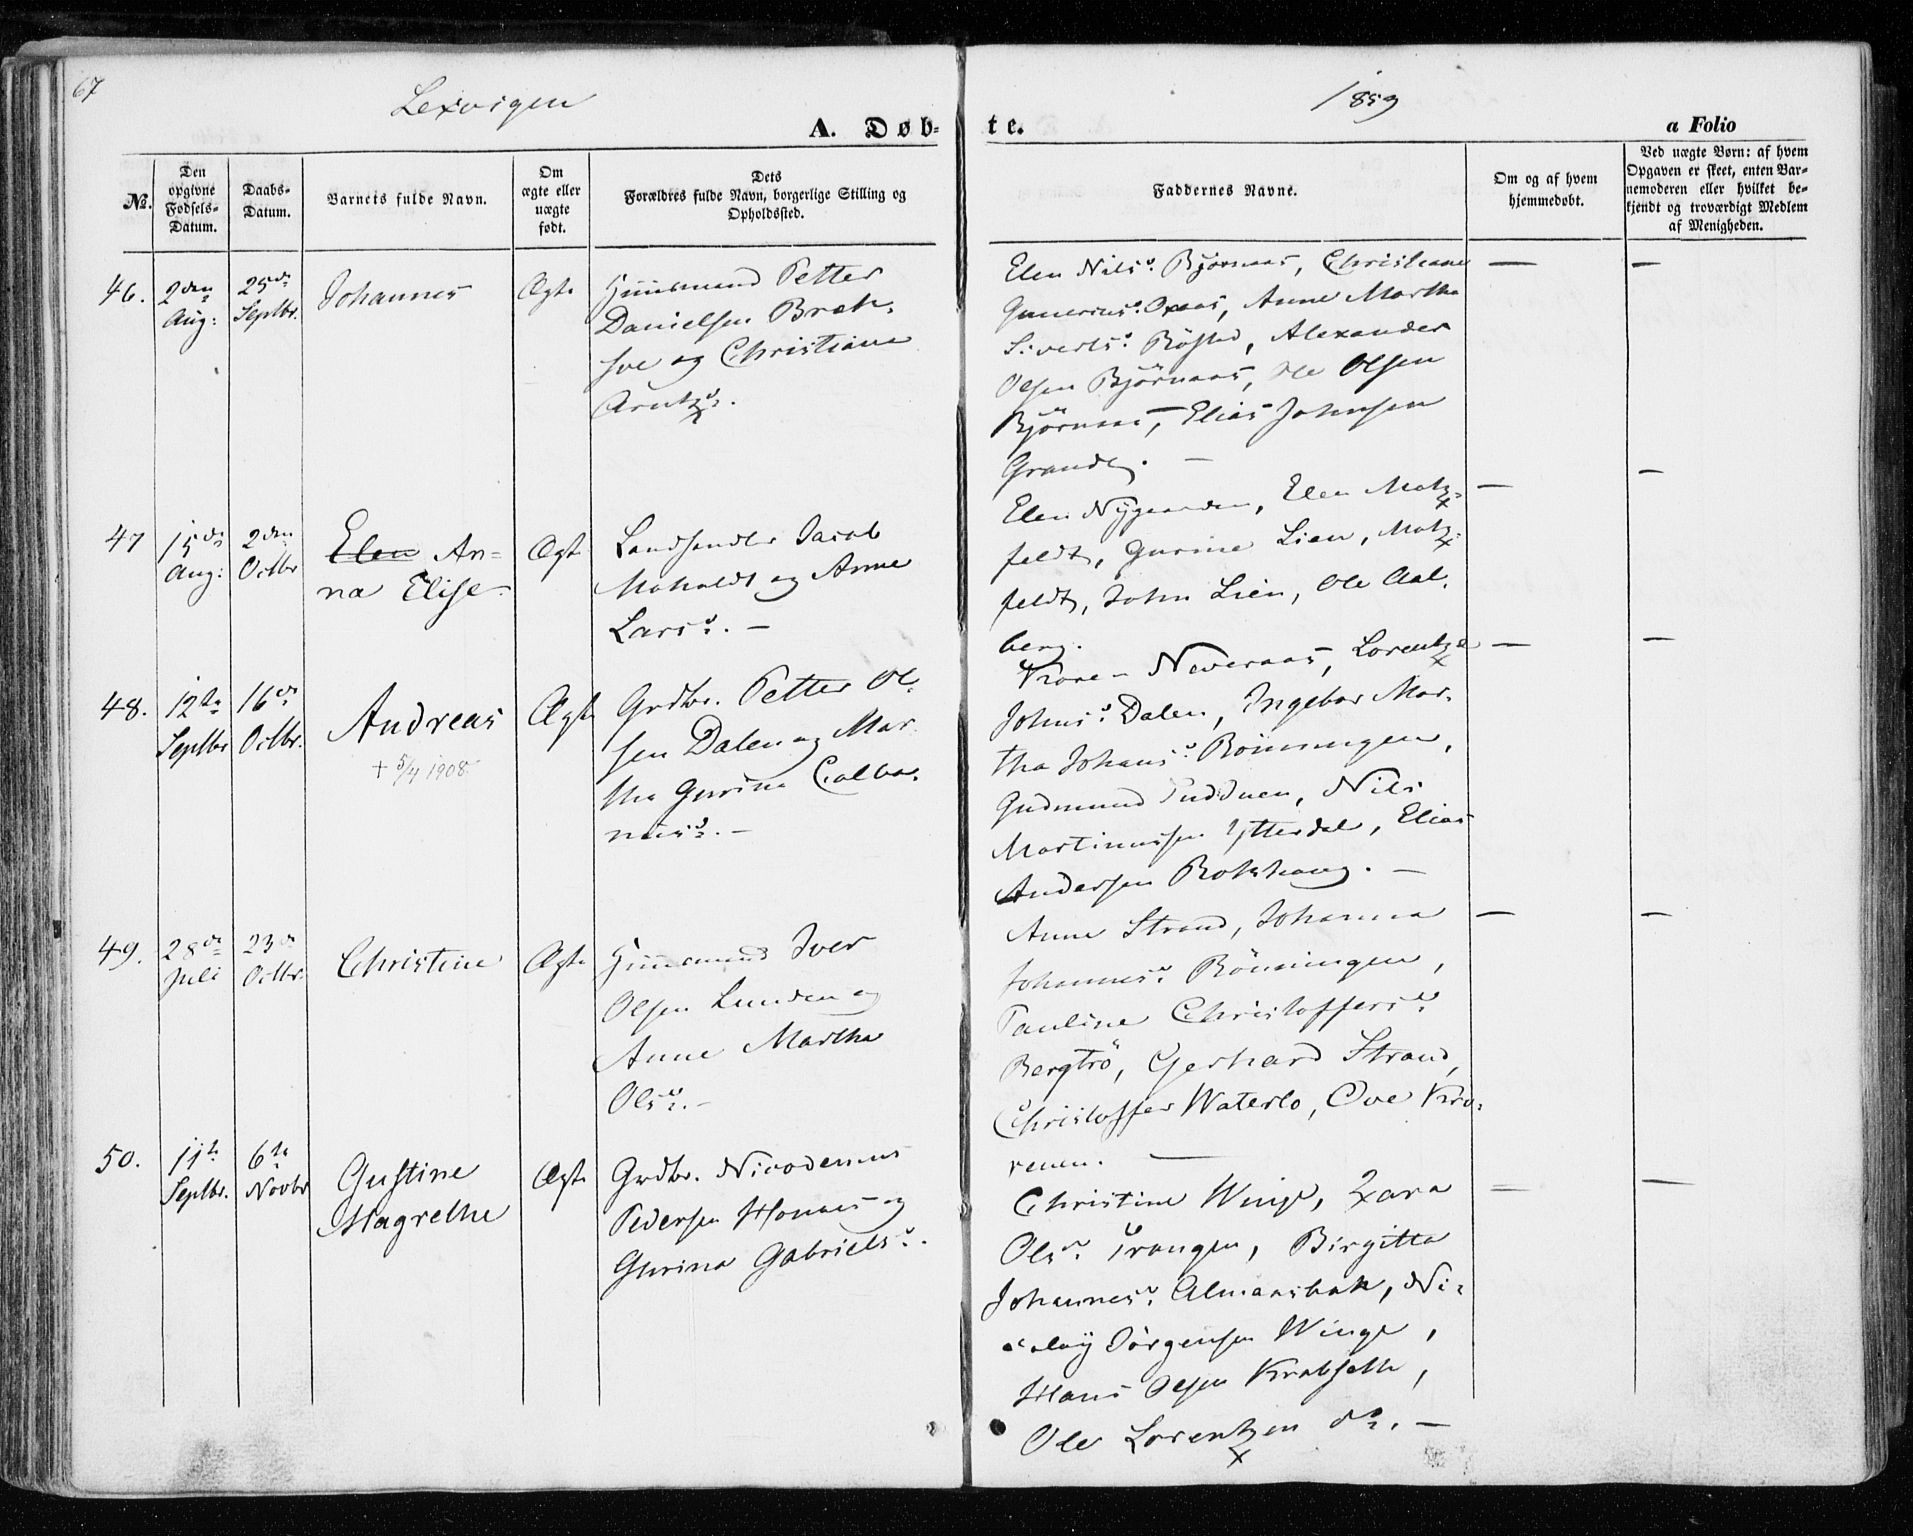 67
Lexvigen
1859
A. Døb-
te.
a Folio
No.
Den opgivne Fødsels-Datum.
Daabs-Datum.
Barnets fulde Navn.
Om ægte eller uægte født.
Dets Forældres fulde Navn, borgerlige Stilling og Opholdssted.
Faddernes Navne.
Om og af hvem hjemmedøbt.
Ved uægte Børn: af hvem Opgaven er skeet, enten Barnemoderen eller hvilket bekjendt og troværdigt Medlem af Menigheden.
46.
2den Aug:
25de Septbr.
Johannes
Ægte
Huusmand Petter
Danielsen Bræk-
hve og Christiane
Arntzd.
Elen Nilsd. Bjørnaas, Christiane
Gunerius. Oxaas, Anne Martha
Sivertsd. Röstad, Alexander
Olsen Björnaas, Ole Olsen
Björnaas, Elias Johnsen
Grande. —
47
15de Aug:
2den Octbr
Elen An-
na Elise
Ægt
Landhandler Jacob
Moholdt og Anne
Larsd. —
Elen Nygaarden, Elen Motz-
feldt, Gurine Lien, Motz-
feldt, John Lien, Ole Aal-
berg.
48.
12te Septbr
16de Octbr.
Andreas
+ 5/4 1908
Ægte
Grdbr. Petter Ol-
sen Dalen og Mar-
tha Gurina Calbo-
niusd. —
Krone- Neveraas, Lorentze
Johnsd. Dalen, Ingebor Mar-
tha Johansd. Rönningen,
Gudmund Tudduen, Nils
Martinussen Ytterdal, Elias
Andersen Rokhaug. —
49.
28de Juli
23de Octbr.
Christine
Ægte
Huusmand Iver
Olsen Lunden og
Anne Martha
Olsd. —
Anne Strand, Johanna
Johannesd. Rönningen,
Pauline Christoffersd.
Bergtrö, Gerhard Strand,
Christoffer Waterlo, Ove Kro-
renen. —
50.
11te Septbr.
6te Novbr
Gustine
Magrethe
Ægte
Grdbr. Nicodemus
Pedersen Honaes og
Gurina Gabrielsd.
Christine Winge, Zara
Olsd. Vrangen, Birgitta
Johannesd. Almaasbak, Ni-
colay Jörgensen Winge,
Hans Olsen Krabsæth,
Ole Lorentzen do. —